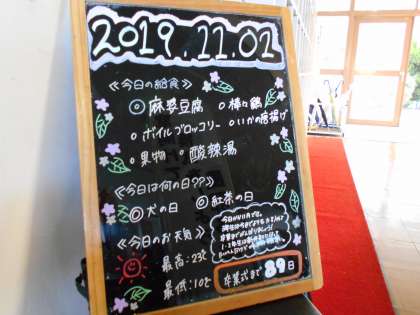 2019.11.01
≪今日の給食≫
◎麻婆豆腐 ○棒々鶏
○ボイルブロッコリー ○いかの唐揚げ
○果物 ○酸辣湯
≪今日は何の日??≫
◎犬の日 ◎紅茶の日
≪今日のお天気≫
最高:23℃
最低:10℃
卒業式まで 89日